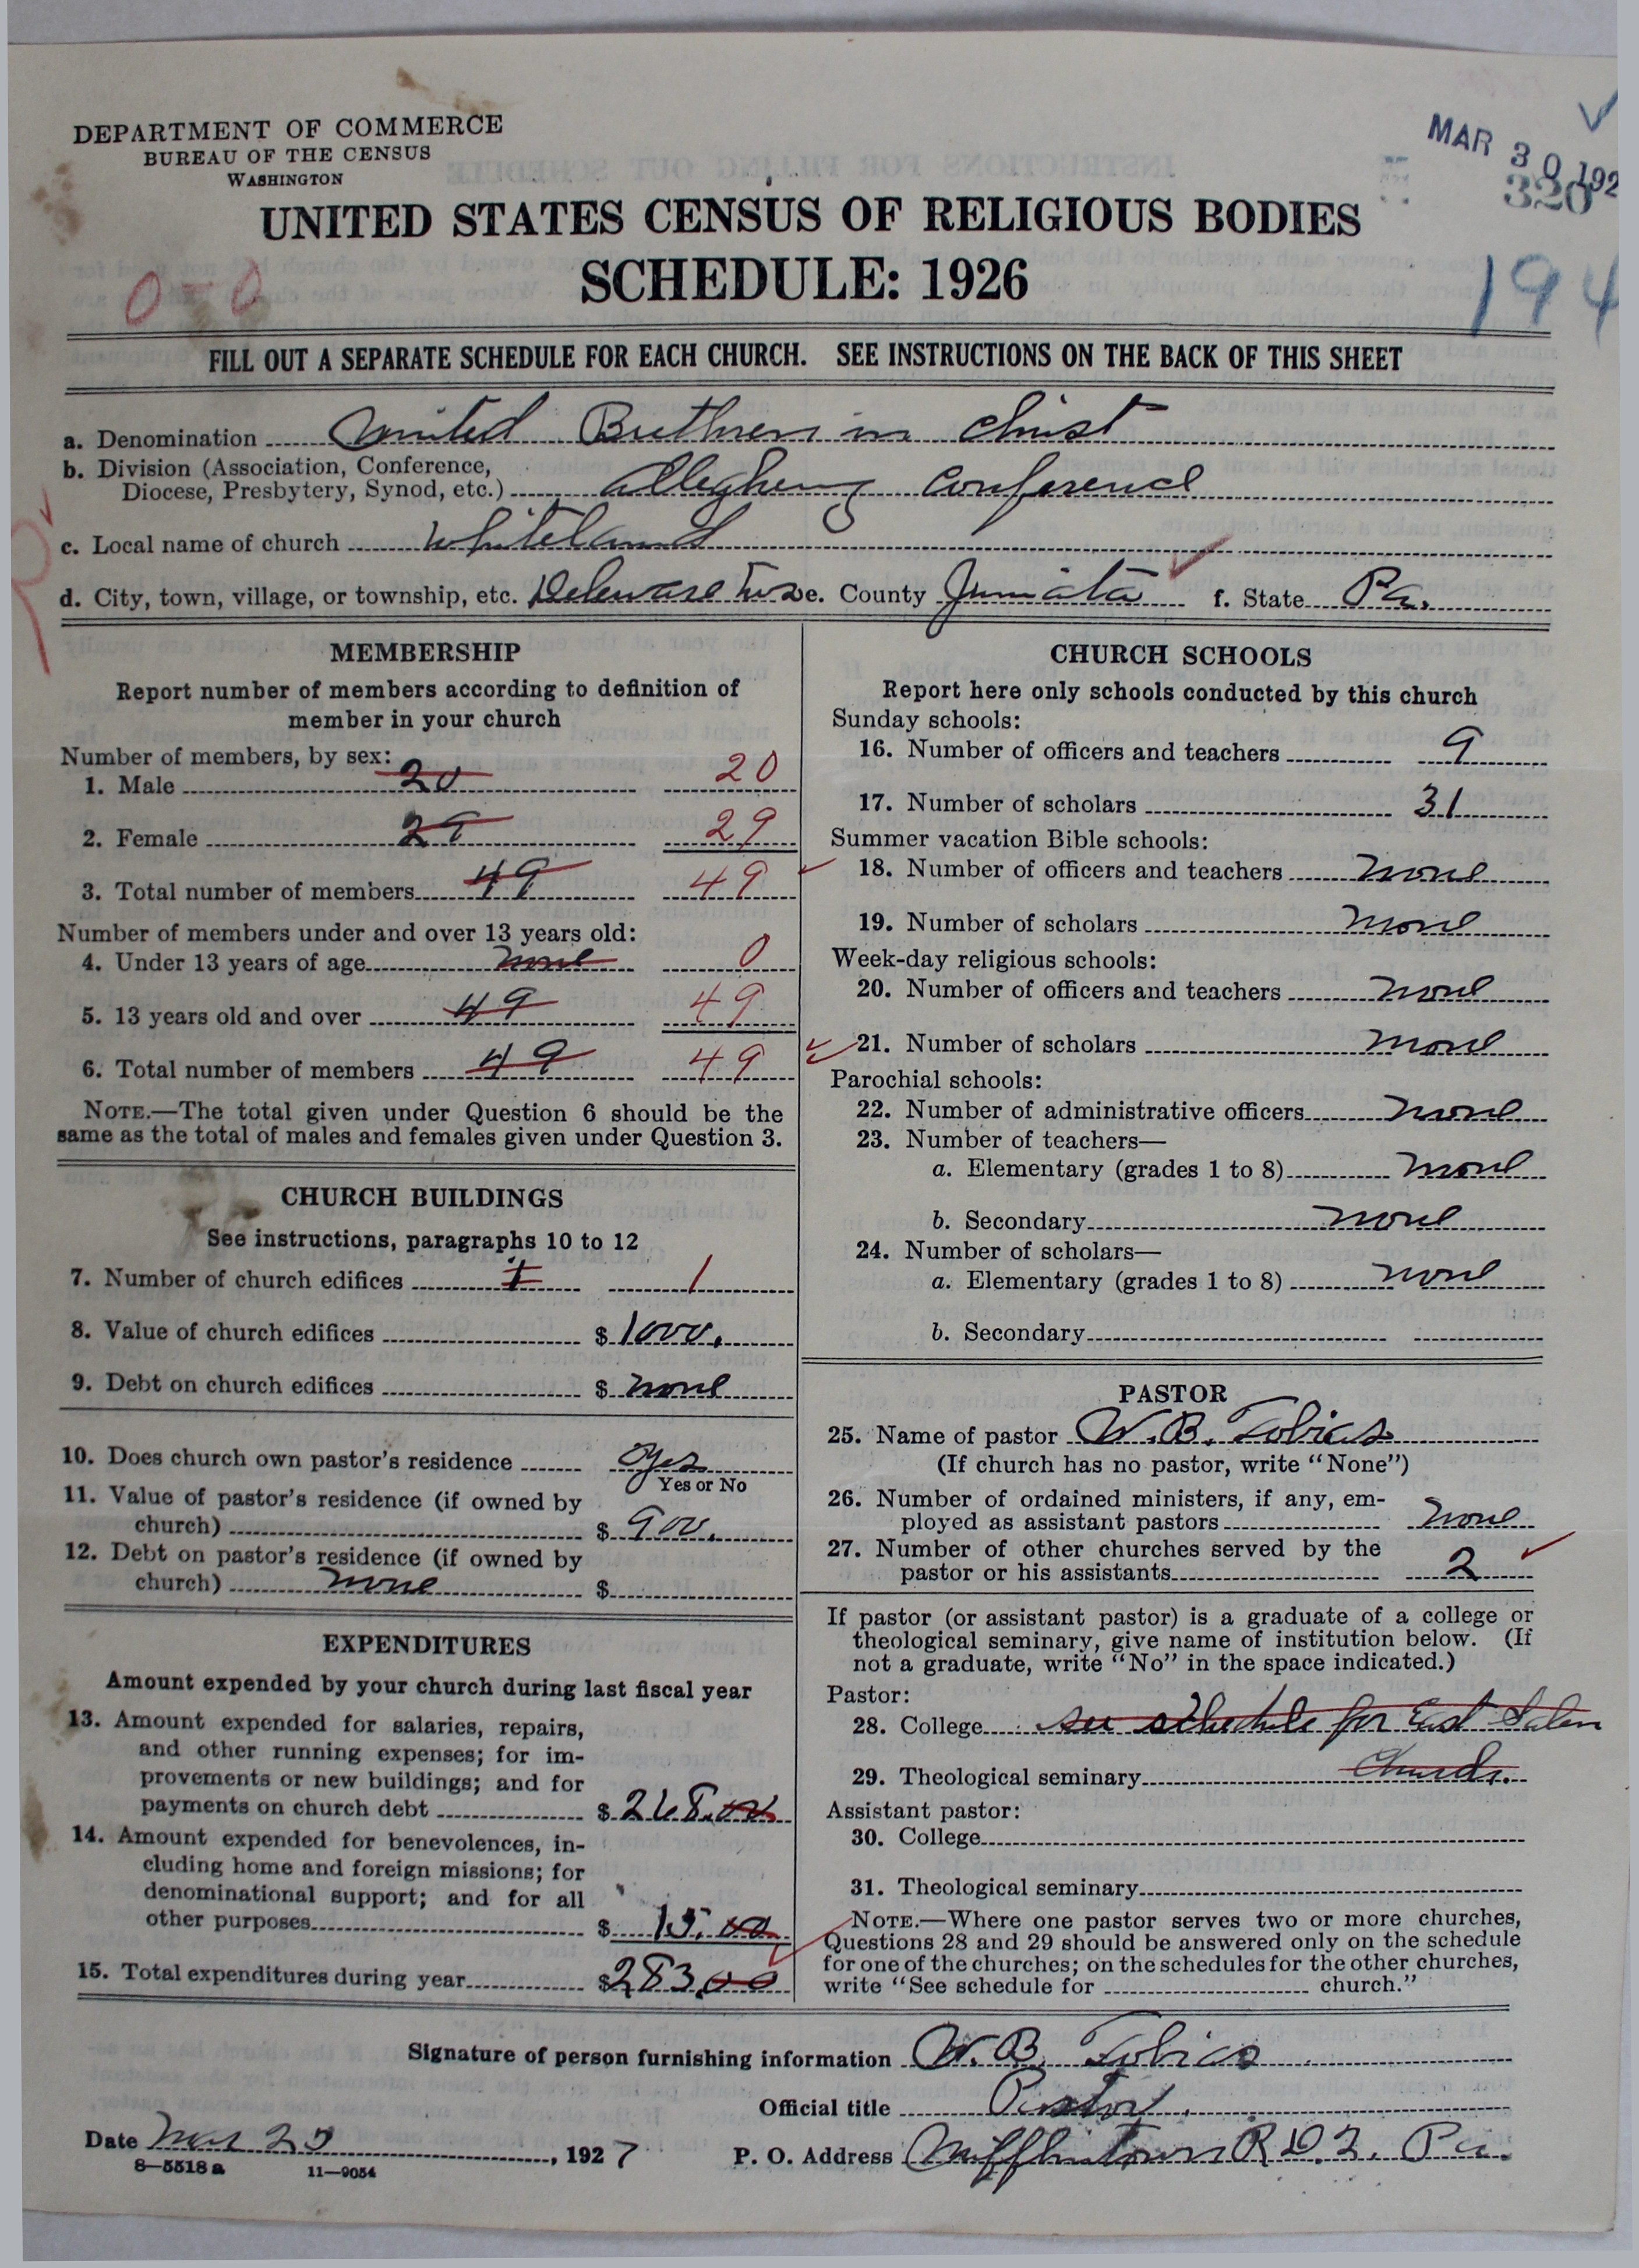 DEPARTMENT OF COMMERCE
BUREAU OF THE CENSUS
WASHINGTON
MAR 30 192
320
UNITED STATES CENSUS OF RELIGIOUS BODIES
SCHEDULE: 1926
0-0
194
FILL OUT A SEPARATE SCHEDULE FOR EACH CHURCH. SEE INSTRUCTIONS ON THE BACK OF THIS SHEET
a. Denomination United Brethren in Christ
b. Division (Association, Conference,
Diocese, Presbytery, Synod, etc.) Allegheny Conference
c. Local name of church Whiteland
d. City, town, village, or township, etc. Delaware Twp e. County Juniata f. State Pa.
MEMBERSHIP
Report number of members according to definition of
member in your church
Number of members, by sex:
1. Male 20 20
2. Female 29 29
3. Total number of members 49 49
Number of members under and over 13 years old:
4. Under 13 years of age none 0
5. 13 years old and over 49 49
6. Total number of members 49 49
NOTE.—The total given under Question 6 should be the
same as the total of males and females given under Question 3.
CHURCH BUILDINGS
See instructions, paragraphs 10 to 12
7. Number of church edifices 1 1
8. Value of church edifices $ 1000.
9. Debt on church edifices $ none
10. Does church own pastor's residence yes
Yes or No
11. Value of pastor's residence (if owned by
church) $ 900.
12. Debt on pastor's residence (if owned by
church) none $
EXPENDITURES
Amount expended by your church during last fiscal year
13. Amount expended for salaries, repairs,
and other running expenses; for im-
provements or new buildings; and for
payments on church debt $ 268.00
14. Amount expended for benevolences, in-
cluding home and foreign missions; for
denominational support; and for all
other purposes $ 15.00
15. Total expenditures during year $ 283.00
CHURCH SCHOOLS
Report here only schools conducted by this church
Sunday schools:
16. Number of officers and teachers 9
17. Number of scholars 31
Summer vacation Bible schools:
18. Number of officers and teachers none
19. Number of scholars none
Week-day religious schools:
20. Number of officers and teachers none
21. Number of scholars none
Parochial schools:
22. Number of administrative officers none
23. Number of teachers—
a. Elementary (grades 1 to 8) none
b. Secondary none
24. Number of scholars—
a. Elementary (grades 1 to 8) none
b. Secondary
PASTOR
25. Name of pastor W. B. Tobias
(If church has no pastor, write "None")
26. Number of ordained ministers, if any, em-
ployed as assistant pastors none
27. Number of other churches served by the
pastor or his assistants 2
If pastor (or assistant pastor) is a graduate of a college or
theological seminary, give name of institution below. (If
not a graduate, write "No" in the space indicated.)
Pastor:
28. College see schedule for East Salem
29. Theological seminary Church.
Assistant pastor:
30. College
31. Theological seminary
NOTE.—Where one pastor serves two or more churches,
Questions 28 and 29 should be answered only on the schedule
for one of the churches; on the schedules for the other churches,
write "See schedule for church."
Signature of person furnishing information W. B. Tobias
Official title Pastor.
Date Mar , 1927 P. O. Address Mifflintown R D 2. Pa.
8—5518 a 11—9054